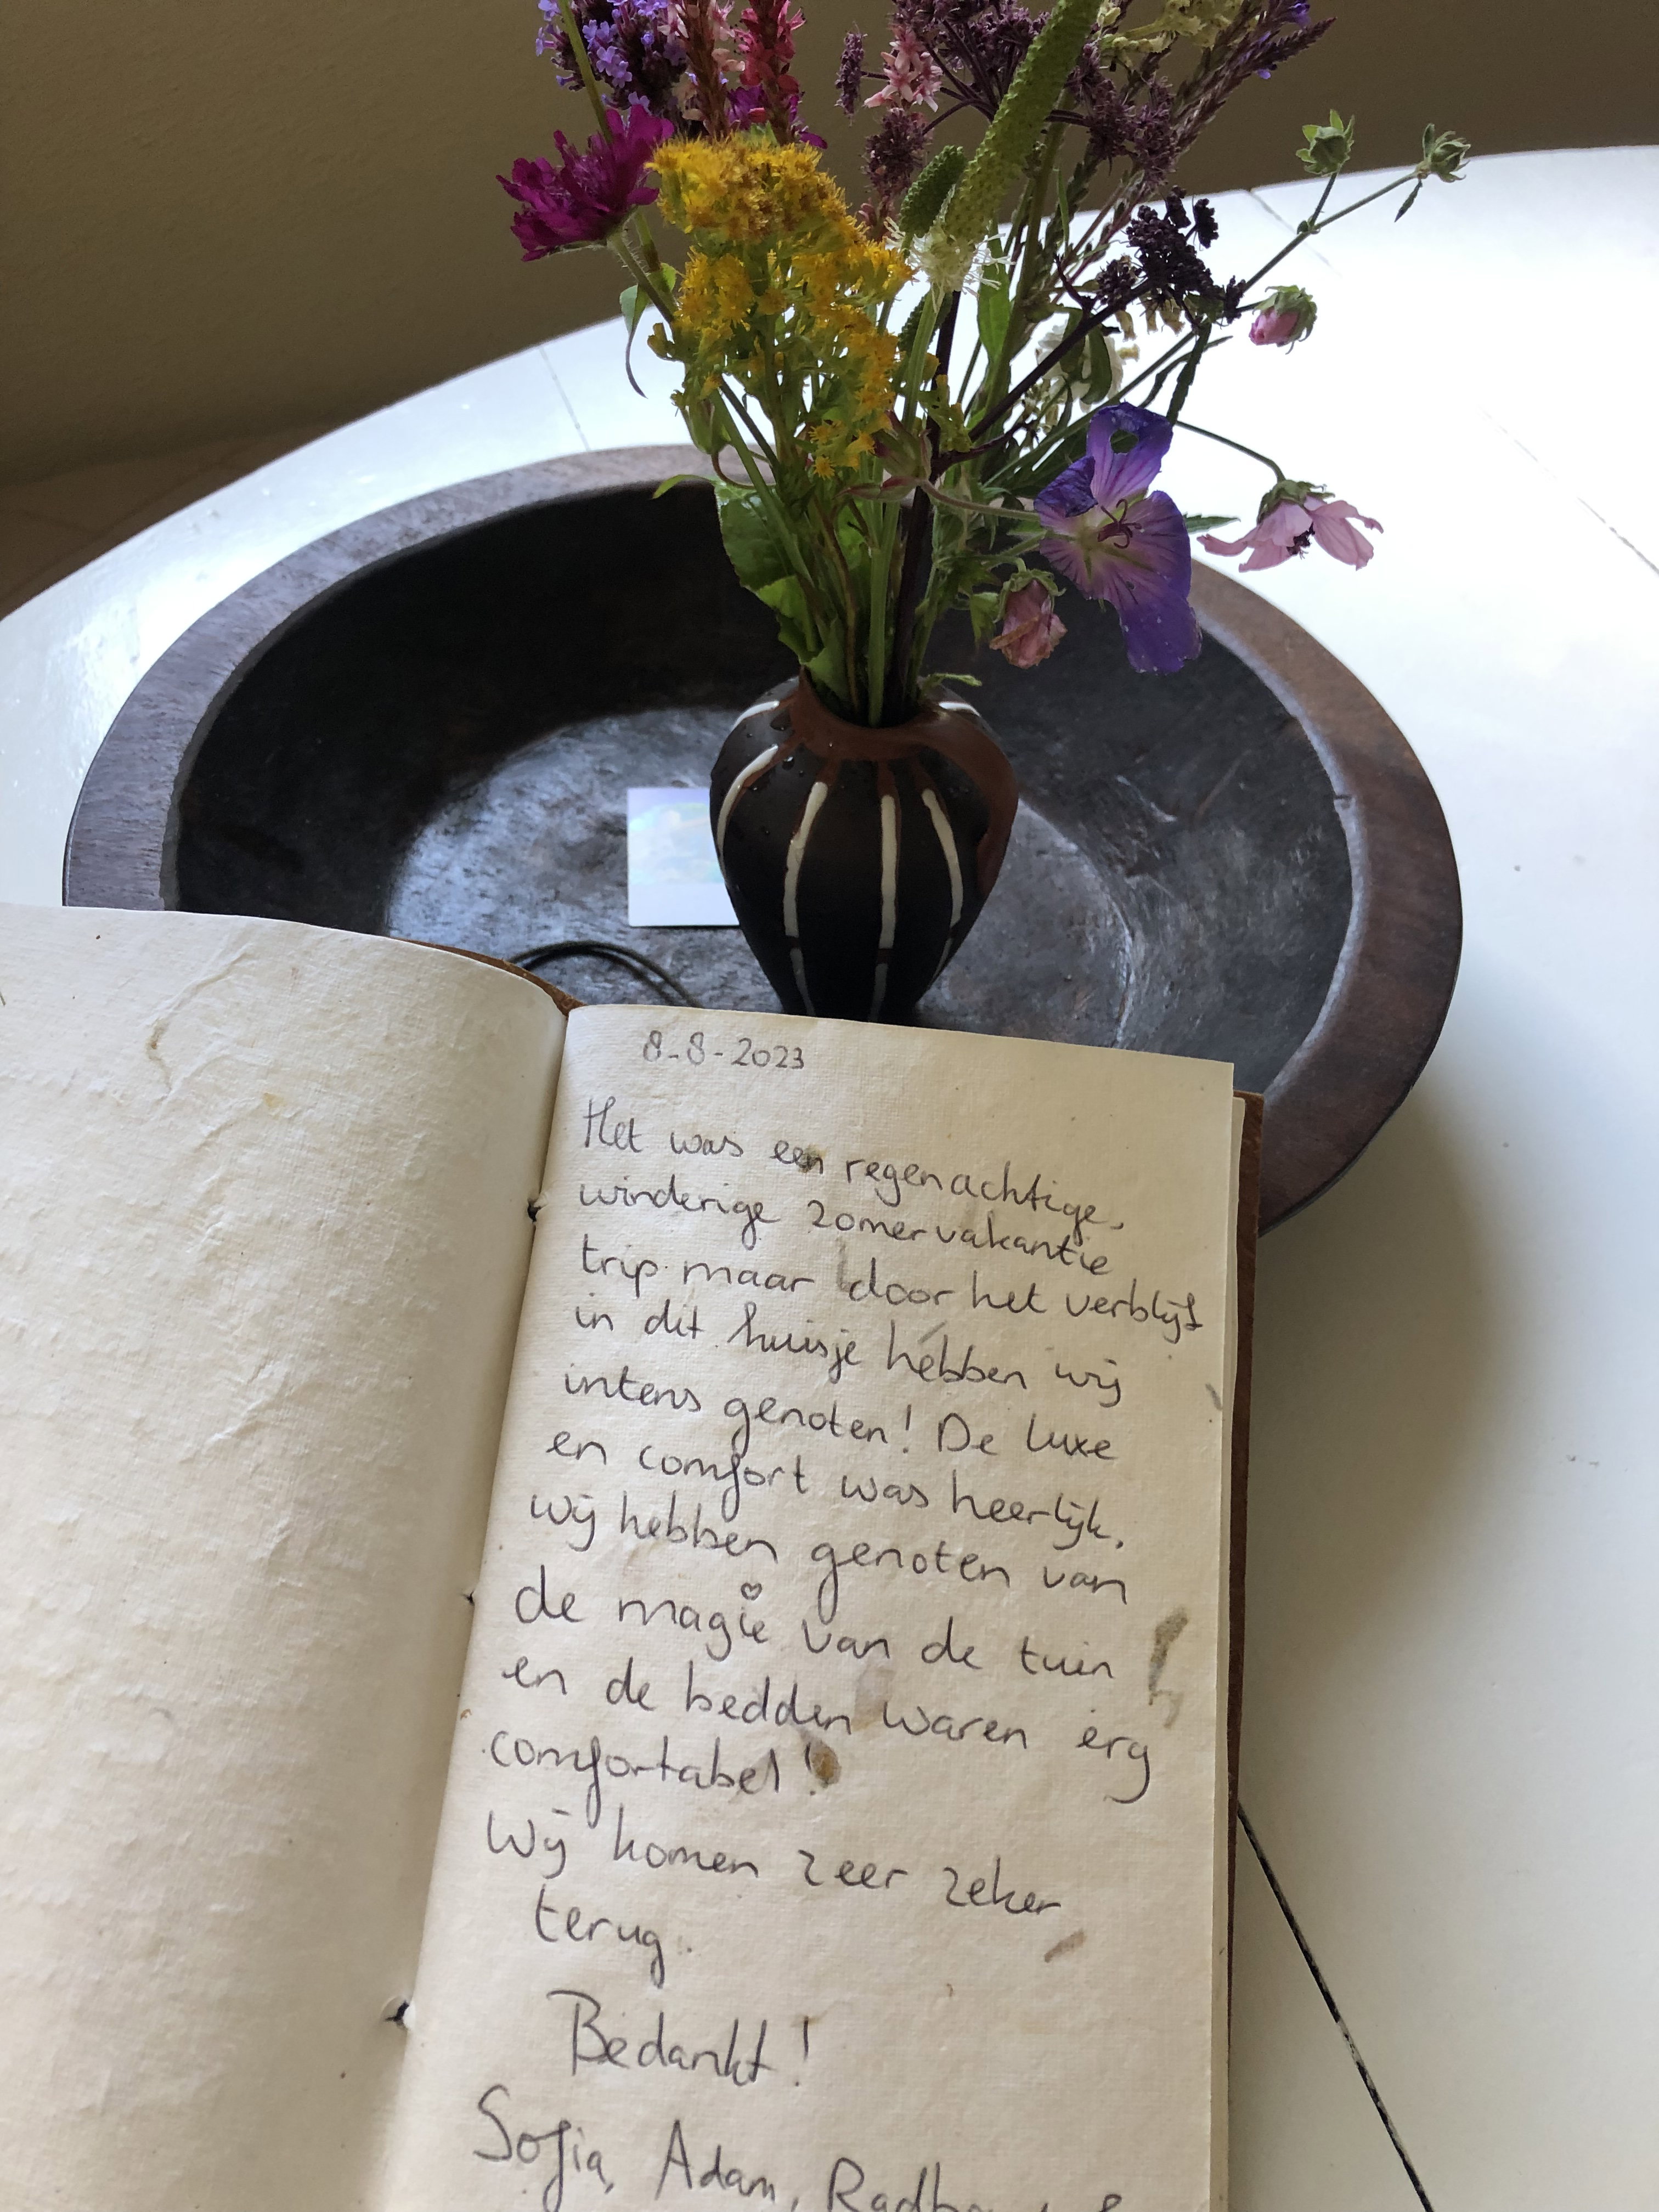 8-8-2023
Het was een regenachtige,
winderige zomervakantie
trip maar door het verblijf
in dit huisje hebben wij
intens genoten! De luxe
en comfort was heerlijk.
wij hebben genoten van
de magie van de tuin
en de bedden waren erg
comfortabel!
Wij komen zeer zeker
terug.
Bedankt!
Sofia, Adam,